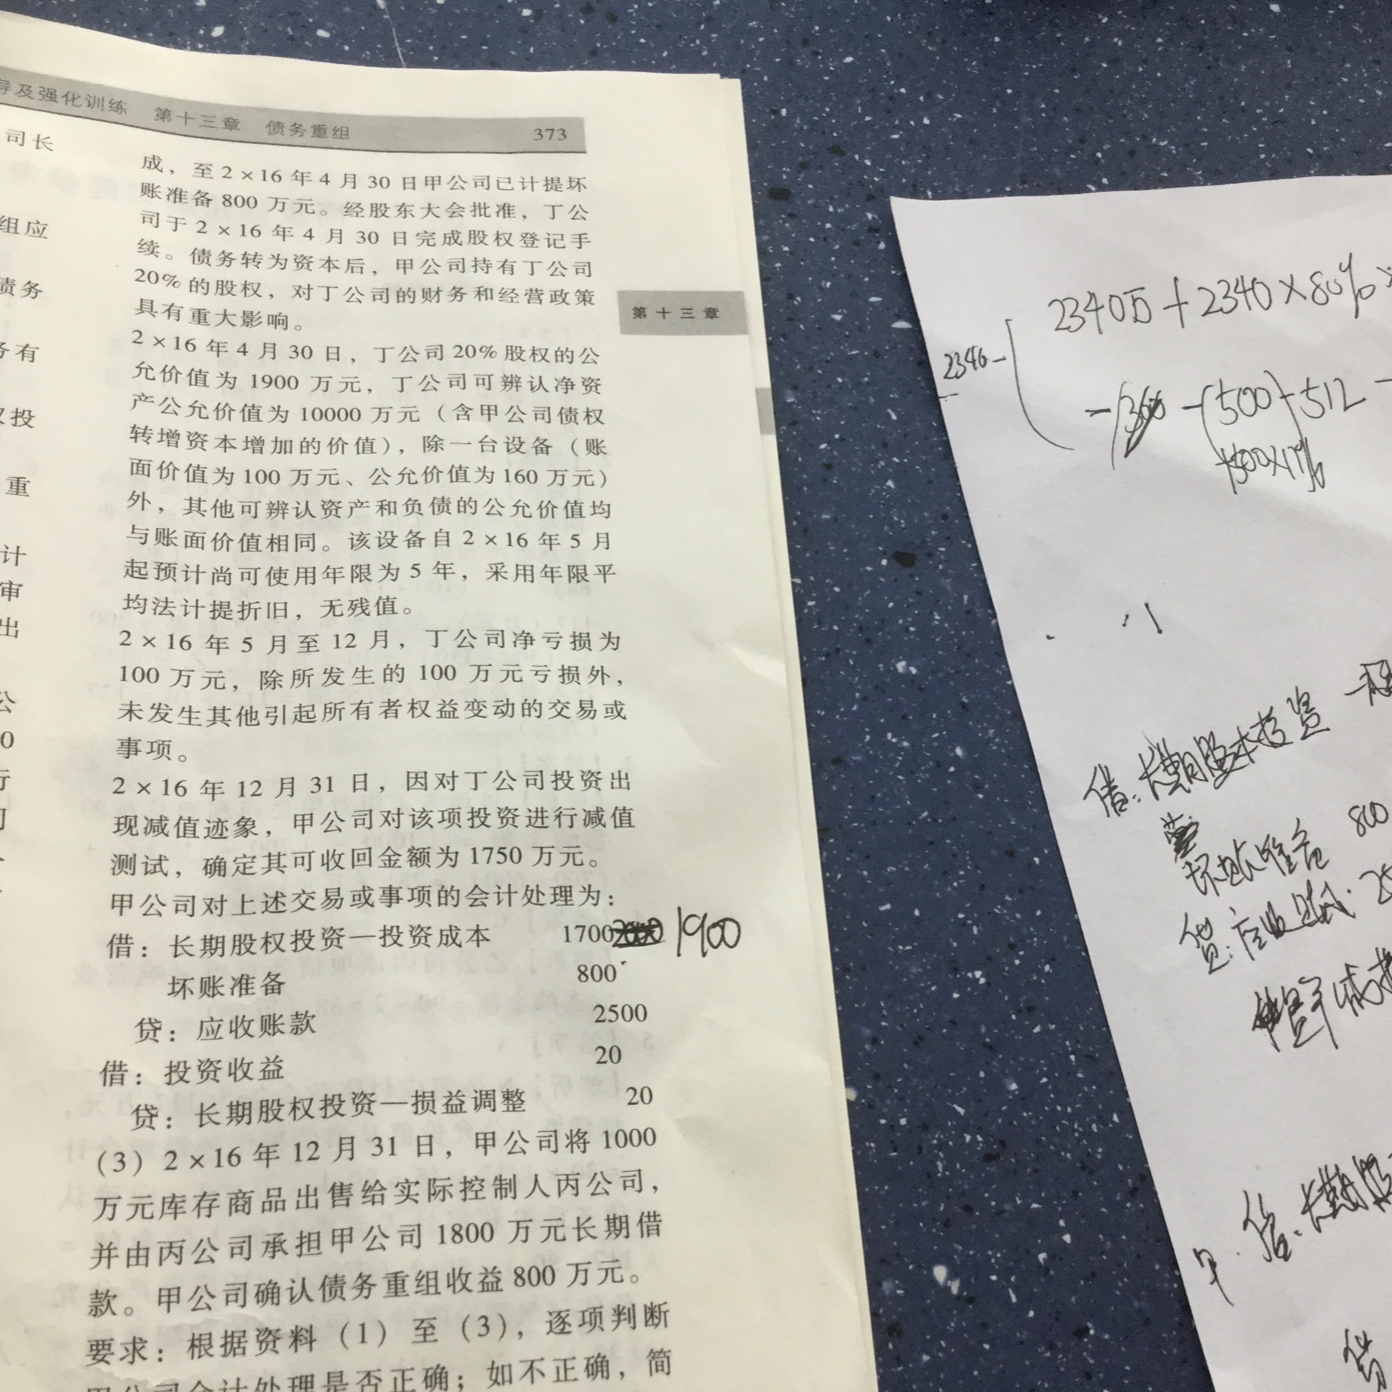 导及强化训练 第十三章 债务重组 373
司长
组应
债务
务有
权投
重
计
审
出
公
0
行
成，至2×16年4月30日甲公司已计提坏
账准备800万元。经股东大会批准，丁公
司于2×16年4月30日完成股权登记手
续。债务转为资本后，甲公司持有丁公司
20%的股权，对丁公司的财务和经营政策
具有重大影响。
2×16年4月30日，丁公司20%股权的公
允价值为1900万元，丁公司可辨认净资
产公允价值为10000万元（含甲公司债权
转增资本增加的价值），除一台设备（账
面价值为100万元、公允价值为160万元）
外，其他可辨认资产和负债的公允价值均
与账面价值相同。该设备自2×16年5月
起预计尚可使用年限为5年，采用年限平
均法计提折旧，无残值。
2×16年5月至12月，丁公司净亏损为
100万元，除所发生的100万元亏损外，
未发生其他引起所有者权益变动的交易或
事项。
2×16年12月31日，因对丁公司投资出
现减值迹象，甲公司对该项投资进行减值
测试，确定其可收回金额为1750万元。
甲公司对上述交易或事项的会计处理为：
借：长期股权投资—投资成本 1700 1900
坏账准备 800
贷：应收账款 2500
借：投资收益 20
贷：长期股权投资—损益调整 20
（3）2×16年12月31日，甲公司将1000
万元库存商品出售给实际控制人丙公司，
并由丙公司承担甲公司1800万元长期借
款。甲公司确认债务重组收益800万元。
要求：根据资料（1）至（3），逐项判断
甲公司会计处理是否正确；如不正确，简
第十三章
2340万+2340×80%×
2340-
-(500)+512-
1500×17%
借：长期股权投资
坏账准备 800
贷：应收账款 25
借：长期股
贷